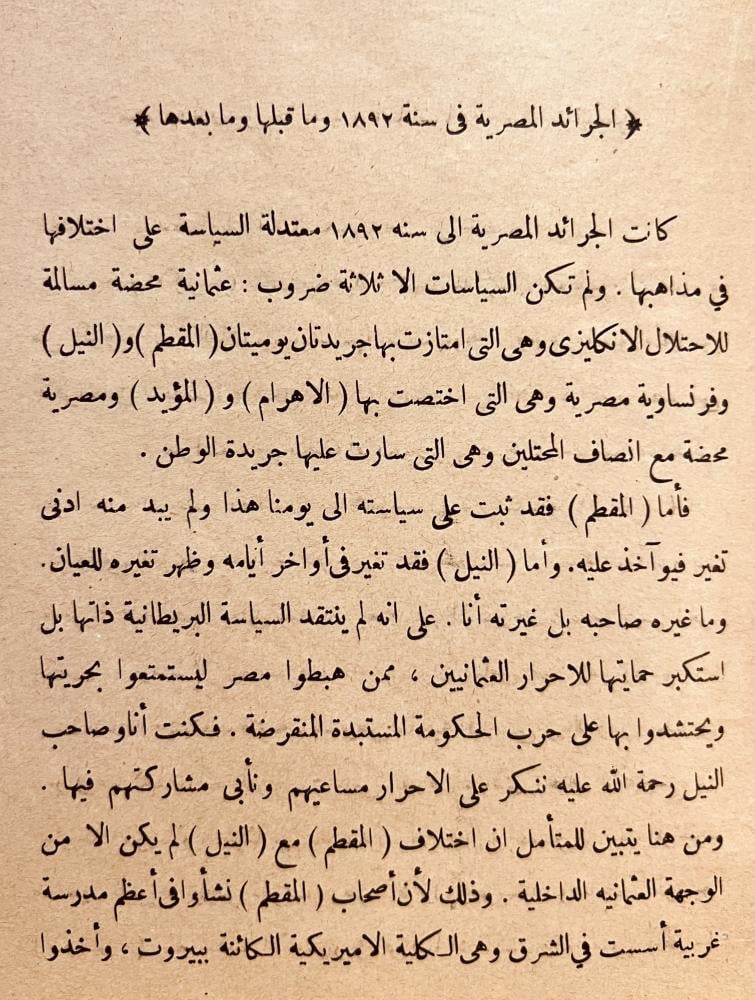 ﴿ الجرائد المصرية فى سنة ١٨٩٢ وما قبلها وما بعدها ﴾
كانت الجرائد المصرية الى سنه ١٨٩٢ معتدلة السياسة على اختلافها
في مذاهبها . ولم تكن السياسات الا ثلاثة ضروب : عثمانية محضة مسالمة
للاحتلال الانكليزى وهى التى امتازت بها جريدتان يوميتان ( المقطم ) و( النيل )
وفرنساوية مصرية وهى التى اختصت بها ( الاهرام ) و ( المؤيد ) ومصرية
محضة مع انصاف المحتلين وهى التى سارت عليها جريدة الوطن .
فأما ( المقطم ) فقد ثبت على سياسته الى يومنا هذا ولم يبد منه ادنى
تغير فيوآخذ عليه. وأما ( النيل ) فقد تغير فى أواخر أيامه وظهر تغيره للعيان.
وما غيره صاحبه بل غيرته أنا . على انه لم ينتقد السياسة البريطانية ذاتها بل
استكبر حمايتها للاحرار العثمانيين ، ممن هبطوا مصر ليستمتعوا بحريتها
ويحتشدوا بها على حرب الحكومة المستبدة المنقرضة . فكنت أنا وصاحب
النيل رحمة الله عليه ننكر على الاحرار مساعيهم ونأبى مشاركتهم فيها .
ومن هنا يتبين للمتأمل ان اختلاف ( المقطم ) مع ( النيل ) لم يكن الا من
الوجهة العثمانيه الداخلية . وذلك لأن أصحاب ( المقطم ) نشأوا فى أعظم مدرسة
غربية أسست في الشرق وهى الكلية الاميريكية الكائنة ببيروت ، وأخذوا